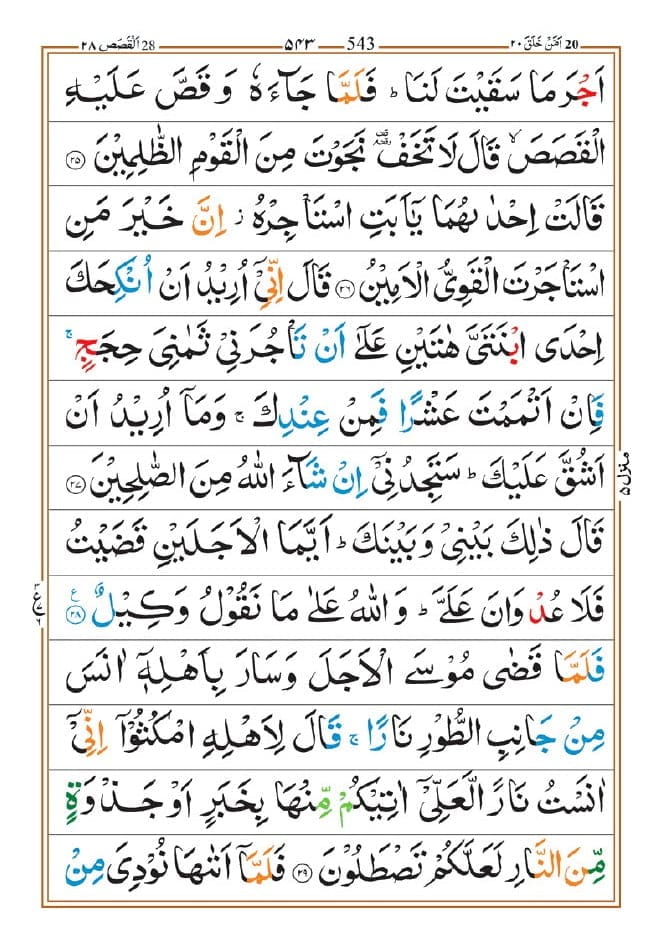 20 اَمَّنْ خَلَقَ ۲۰ 543 ۵۴۳ 28 اَلْقَصَص ۲۸
اَجْرَ مَا سَقَيْتَ لَنَا ؕ فَلَمَّا جَآءَهٗ وَ قَصَّ عَلَيْهِ
الْقَصَصَ ۙ قَالَ لَا تَخَفْ ۥ نَجَوْتَ مِنَ الْقَوْمِ الظّٰلِمِيْنَ ﴿۲۵﴾
قَالَتْ اِحْدٰىهُمَا يٰۤاَبَتِ اسْتَاْجِرْهُ ؗ اِنَّ خَيْرَ مَنِ
اسْتَاْجَرْتَ الْقَوِيُّ الْاَمِيْنُ ﴿۲۶﴾ قَالَ اِنِّيْۤ اُرِيْدُ اَنْ اُنْكِحَكَ
اِحْدَى ابْنَتَيَّ هٰتَيْنِ عَلٰۤى اَنْ تَاْجُرَنِيْ ثَمٰنِيَ حِجَجٍ ۚ
فَاِنْ اَتْمَمْتَ عَشْرًا فَمِنْ عِنْدِكَ ۚ وَمَاۤ اُرِيْدُ اَنْ
اَشُقَّ عَلَيْكَ ؕ سَتَجِدُنِيْۤ اِنْ شَآءَ اللّٰهُ مِنَ الصّٰلِحِيْنَ ﴿۲۷﴾
قَالَ ذٰلِكَ بَيْنِيْ وَبَيْنَكَ ؕ اَيَّمَا الْاَجَلَيْنِ قَضَيْتُ
فَلَا عُدْوَانَ عَلَيَّ ؕ وَاللّٰهُ عَلٰى مَا نَقُوْلُ وَكِيْلٌ ﴿۲۸﴾ ع
فَلَمَّا قَضٰى مُوْسَى الْاَجَلَ وَسَارَ بِاَهْلِهٖۤ اٰنَسَ
مِنْ جَانِبِ الطُّوْرِ نَارًا ۚ قَالَ لِاَهْلِهِ امْكُثُوْۤا اِنِّيْۤ
اٰنَسْتُ نَارًا لَّعَلِّيْۤ اٰتِيْكُمْ مِّنْهَا بِخَبَرٍ اَوْ جَذْوَةٍ
مِّنَ النَّارِ لَعَلَّكُمْ تَصْطَلُوْنَ ﴿۲۹﴾ فَلَمَّاۤ اَتٰىهَا نُوْدِيَ مِنْ
منزل ۵